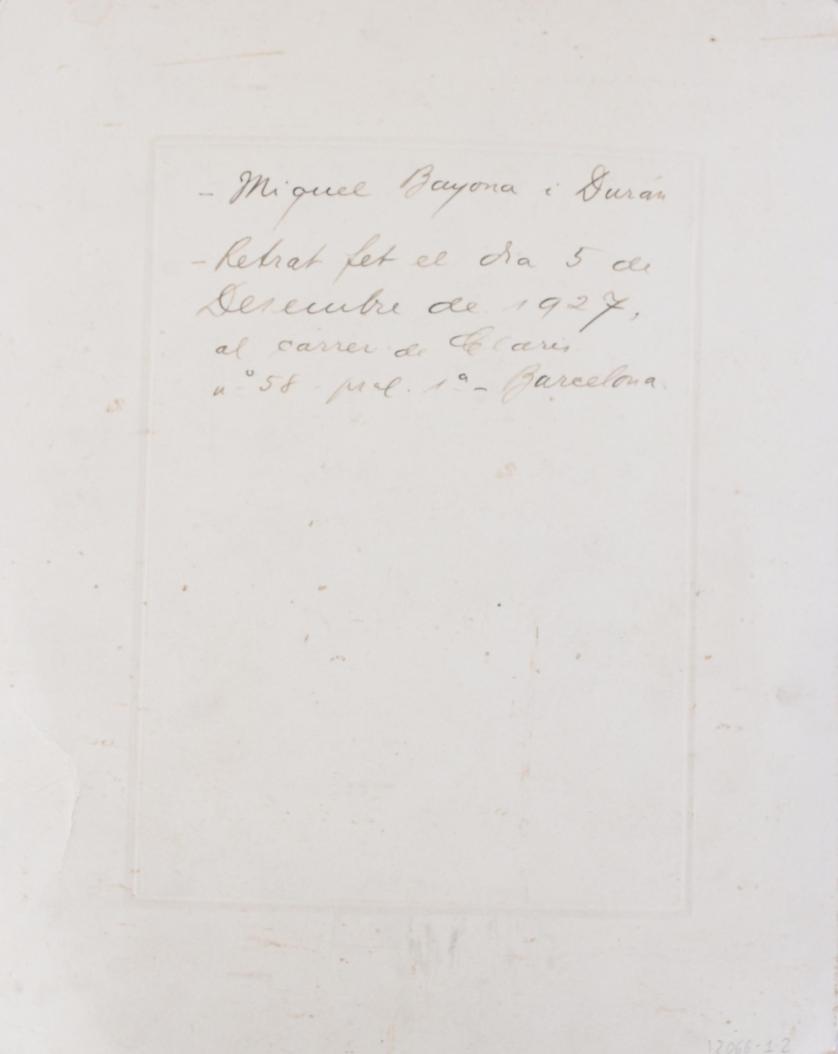 - Miquel Bayona i Durán
- Retrat fet el dia 5 de
Desembre de 1927,
al carrer de Claris
nº 58 pral. 1ª - Barcelona.
12066-1-2